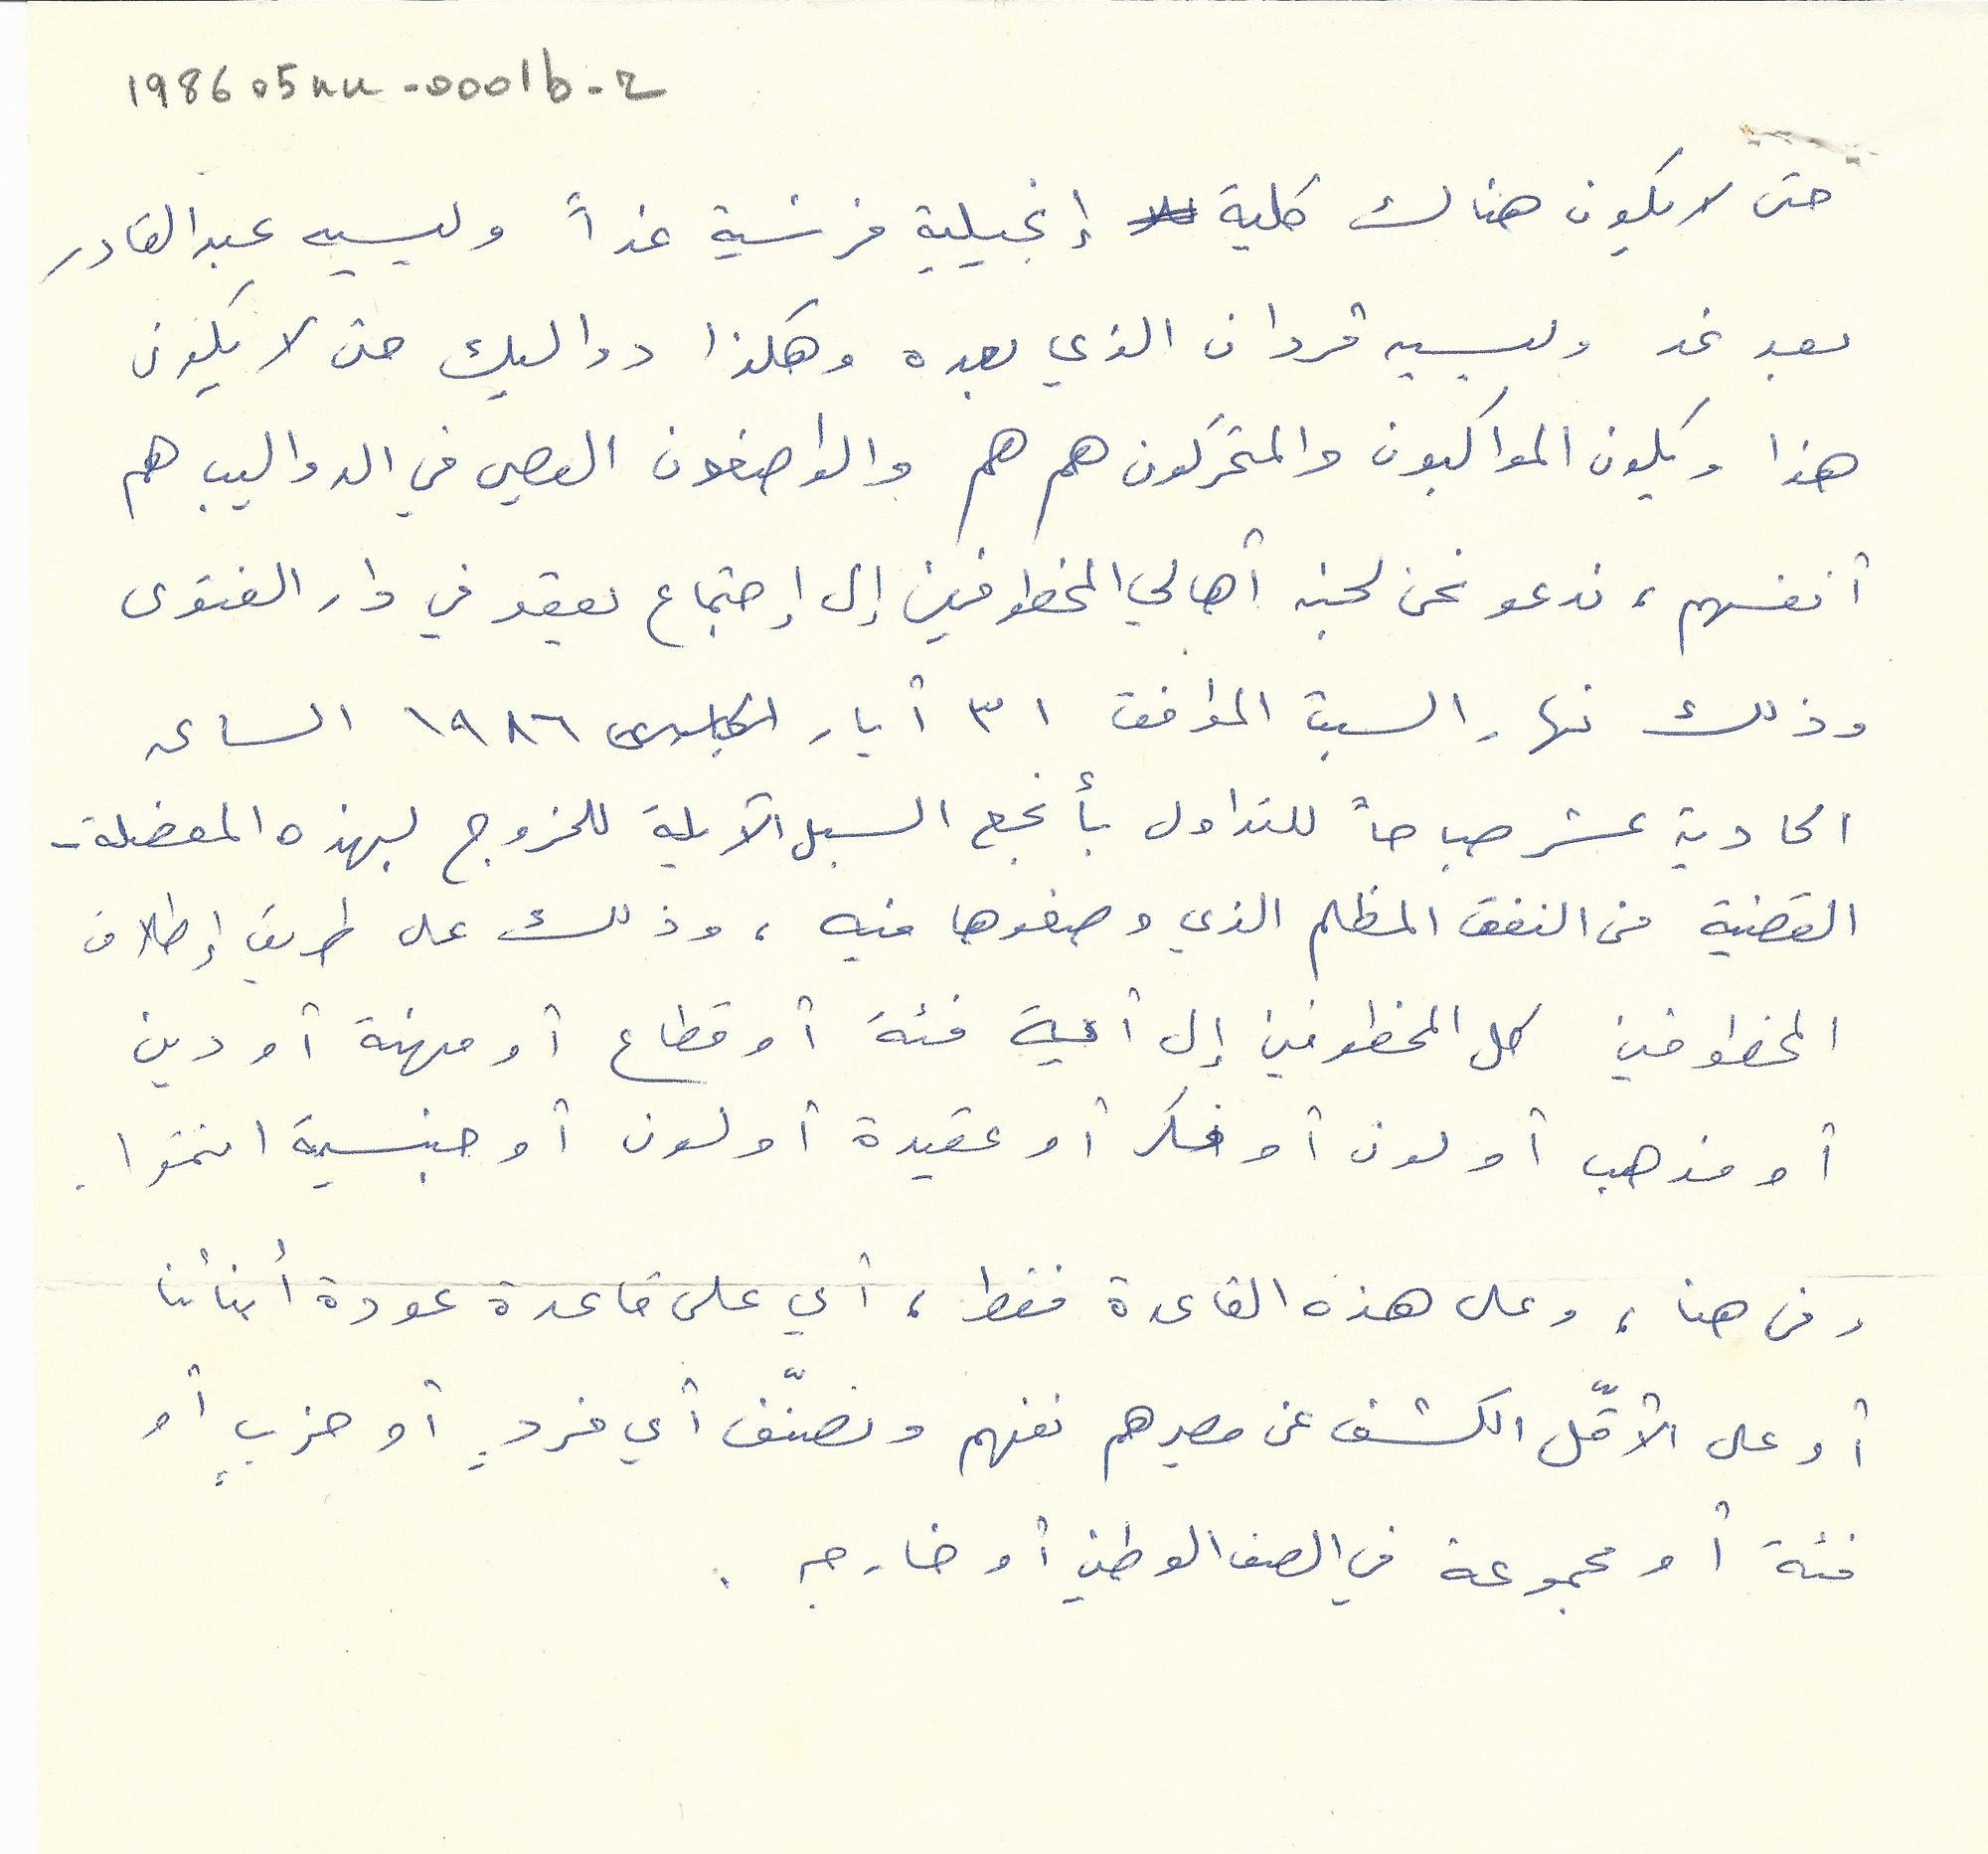 198605nn-0001b-2
حتى لا يكون هناك كلية إنجيلية فرنسية غداً وليسيه عبد القادر
بعد غد وليسيه فردان الذي بعده وهكذا دواليك حتى لا يكون
هذا ويكون المواكبون والمتحركون هم هم والواضعون العصي في الدواليب هم
أنفسهم، ندعو نحن لجنة أهالي المخطوفين إلى إجتماع يعقد في دار الفتوى
وذلك نهار السبت الموافق ٣١ أيار ١٩٨٦ الساعة
الحادية عشر صباحاً للتداول بأنجع السبل الآيلة للخروج بهذه المعضلة -
القضية من النفق المظلم الذي وضعوها فيه، وذلك على طريق إطلاق
المخطوفين كل المخطوفين إلى أية فئة أو قطاع أو مهنة أو دين
أو مذهب أو لون أو فكر أو عقيدة أو لون أو جنسية انتموا.
ومن هنا، وعلى هذه القاعدة فقط، أي على قاعدة عودة أبنائنا
أو على الأقّل الكشف عن مصيرهم نفهم ونصنّف أي فردٍ أو حزبٍ أو
فئة أو مجموعة في الصف الوطني أو خارجه.